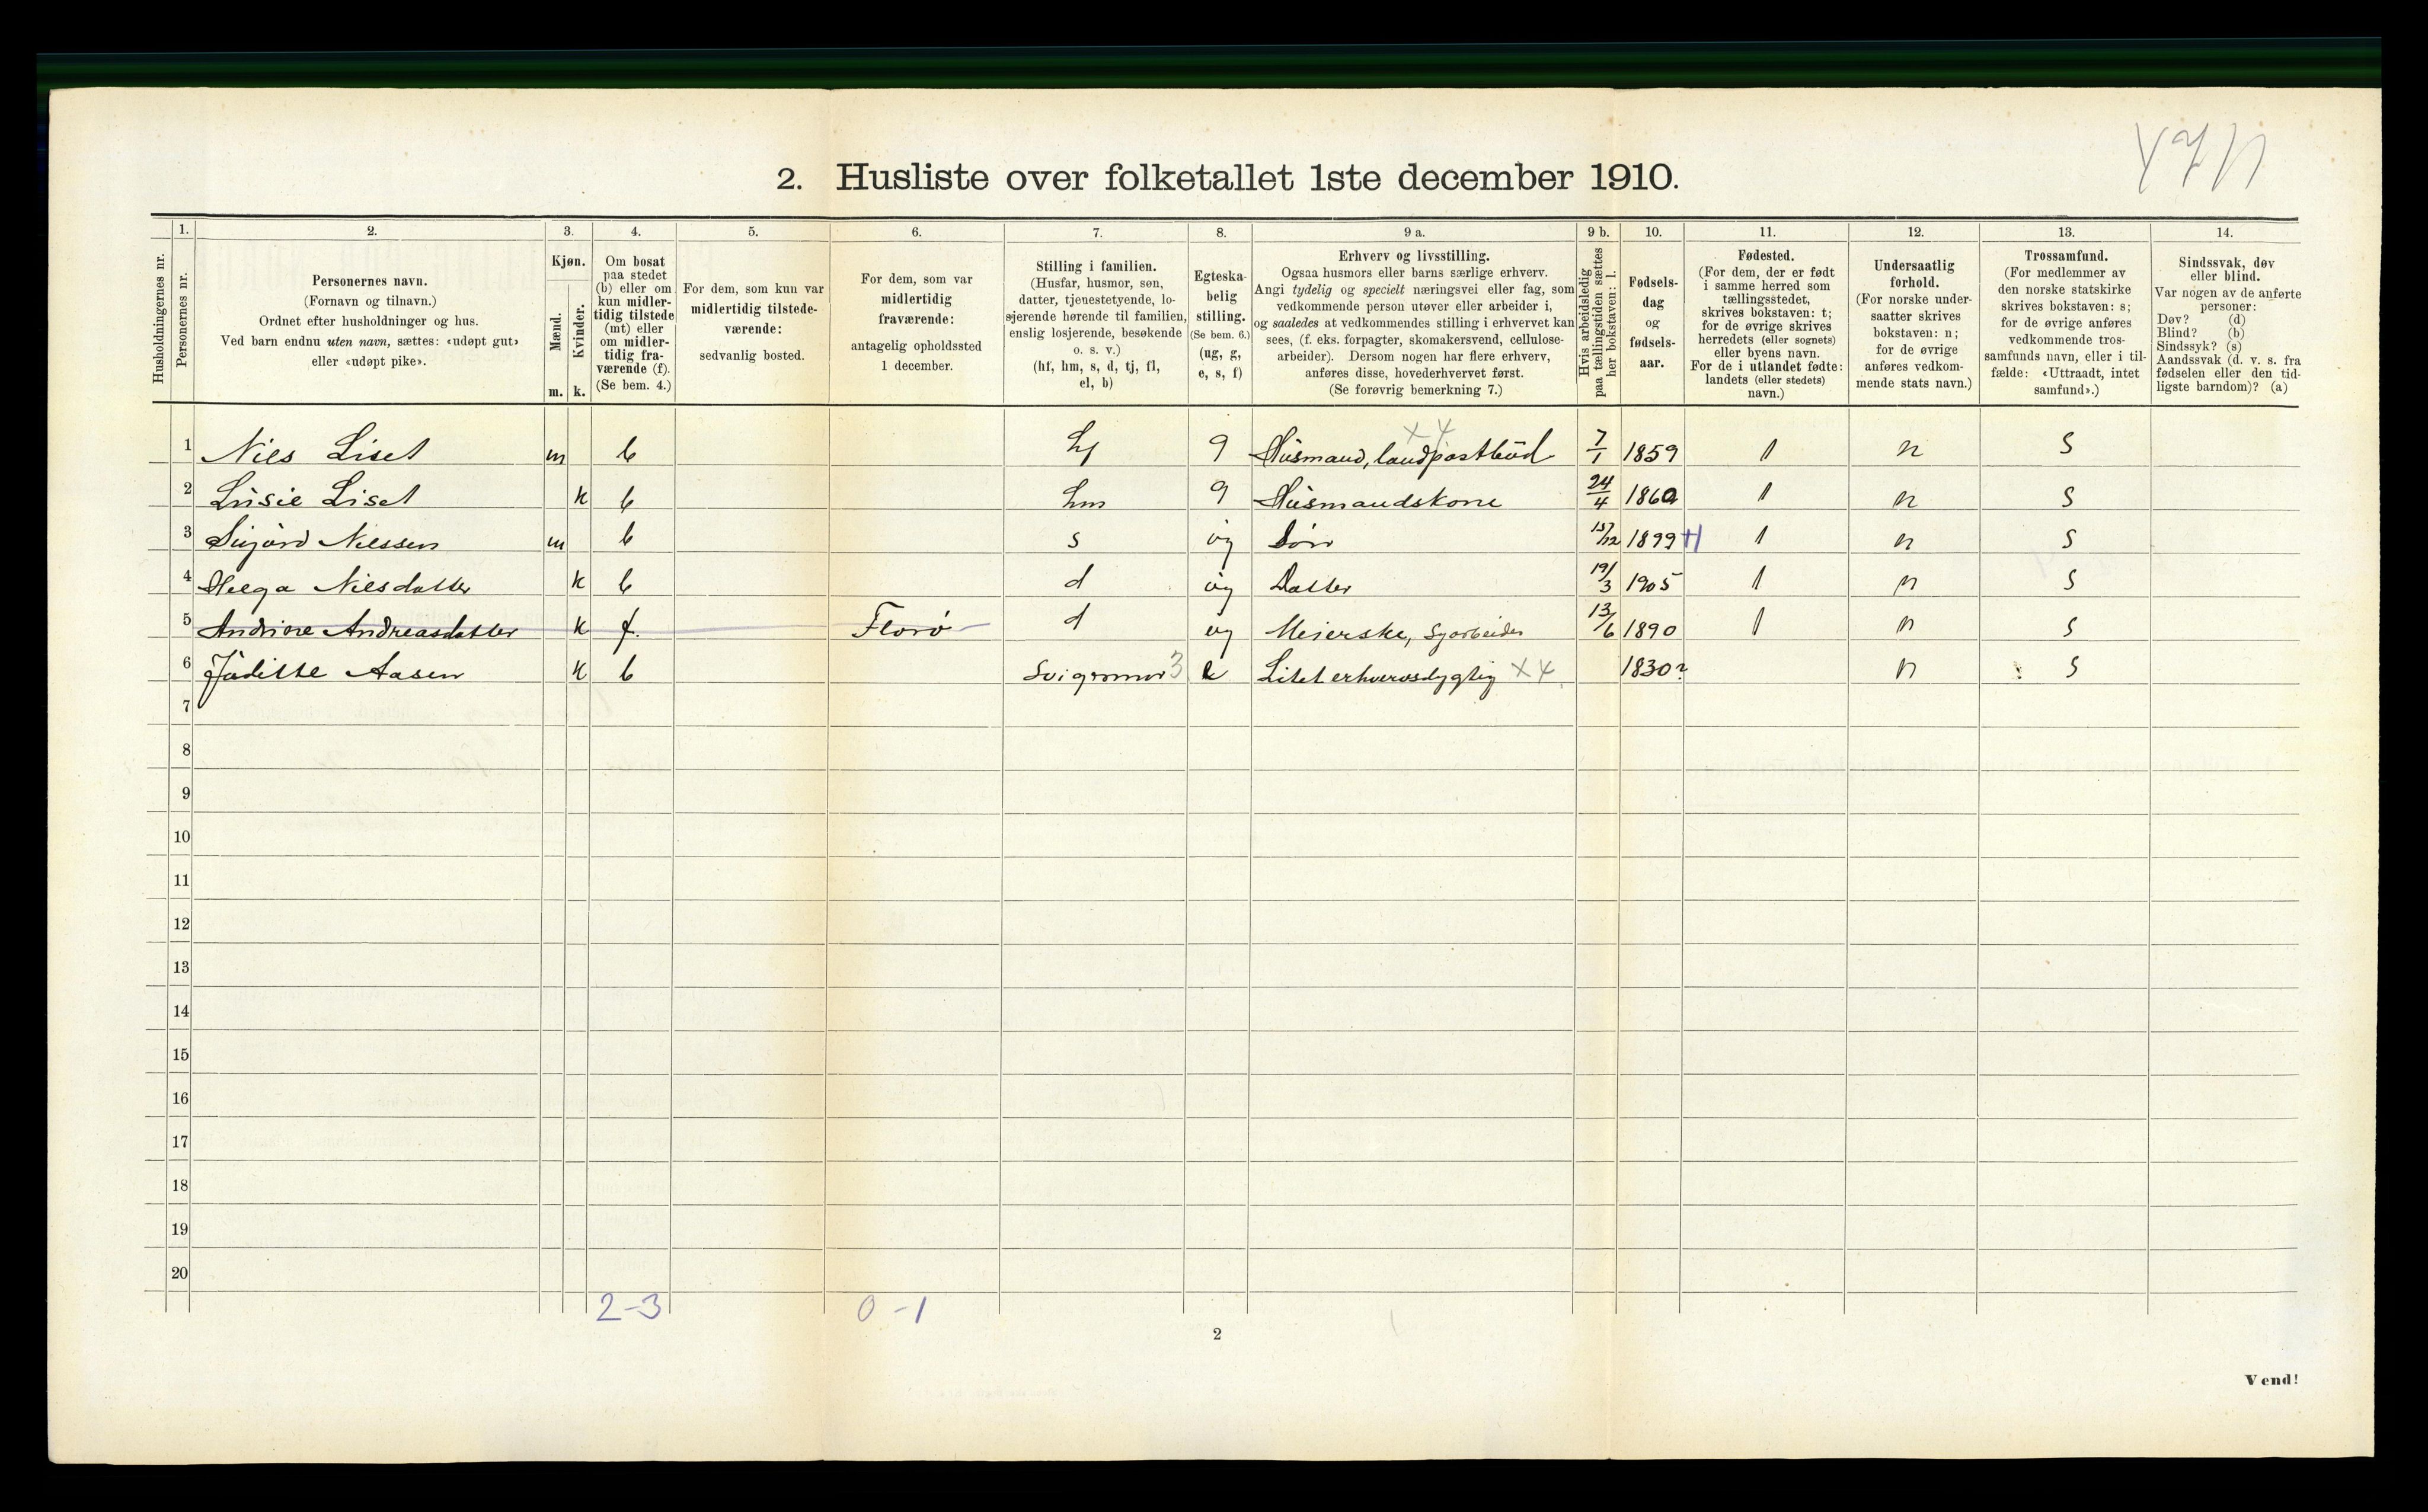 2. Husliste over folketallet 1ste december 1910.
Husholdningernes nr.
1.
Personernes nr.
2.
Personernes navn.
(Fornavn og tilnavn.)
Ordnet efter husholdninger og hus.
Ved barn endnu uten navn, sættes: «udøpt gut»
eller «udøpt pike».
3.
Kjøn.
Mænd.
Kvinder.
m. k.
4.
Om bosat
paa stedet
(b) eller om
kun midler-
tidig tilstede
(mt) eller
om midler-
tidig fra-
værende (f).
(Se bem. 4.)
5.
For dem, som kun var
midlertidig tilstede-
værende:
sedvanlig bosted.
6.
For dem, som var
midlertidig
fraværende:
antagelig opholdssted
1 december.
7.
Stilling i familien.
(Husfar, husmor, søn,
datter, tjenestetyende, lo-
sjerende hørende til familien,
enslig losjerende, besøkende
o. s. v.)
(hf, hm, s, d, tj, fl,
el, b)
8.
Egteska-
belig
stilling.
(Se bem. 6.)
(ug, g,
e, s, f)
9 a.
Erhverv og livsstilling.
Ogsaa husmors eller barns særlige erhverv.
Angi tydelig og specielt næringsvei eller fag, som
vedkommende person utøver eller arbeider i,
og saaledes at vedkommendes stilling i erhvervet kan
sees, (f. eks. forpagter, skomakersvend, cellulose-
arbeider). Dersom nogen har flere erhverv,
anføres disse, hovederhvervet først.
(Se forøvrig bemerkning 7.)
9 b.
Hvis arbeidsledig
paa tællingstiden sættes
her bokstaven: l.
10.
Fødsels-
dag
og
fødsels-
aar.
11.
Fødested.
(For dem, der er født
i samme herred som
tællingsstedet,
skrives bokstaven: t;
for de øvrige skrives
herredets (eller sognets)
eller byens navn.
For de i utlandet fødte:
landets (eller stedets)
navn.)
12.
Undersaatlig
forhold.
(For norske under-
saatter skrives
bokstaven: n;
for de øvrige
anføres vedkom-
mende stats navn.)
13.
Trossamfund.
(For medlemmer av
den norske statskirke
skrives bokstaven: s;
for de øvrige anføres
vedkommende tros-
samfunds navn, eller i til-
fælde: «Uttraadt, intet
samfund».)
14.
Sindssvak, døv
eller blind.
Var nogen av de anførte
personer:
Døv? (d)
Blind? (b)
Sindssyk? (s)
Aandssvak (d. v. s. fra
fødselen eller den tid-
ligste barndom)? (a)
x 4
1 Nils Liset m b hf g Husmand, landpostbud 7/1 1859 t n S
2 Lusie Liset k b hm g Husmandskone 24/4 1860 t n S
3 Sigurd Nilssen m b s ug Søn 15/12 1899 t n S
4 Helga Nilsdatter k b d ug Datter 19/3 1905 t n S
5 Andrine Andreasdatter k f. Florø d ug Meierske, Syarbeider 13/6 1890 t n S
6 Juditte Aasen k b Svigermor 3 e Litet erhvervsdygtig x 4 1830? n S
7
8
9
10
11
12
13
14
15
16
17
18
19
20
2-3 0-1
2
Vend!